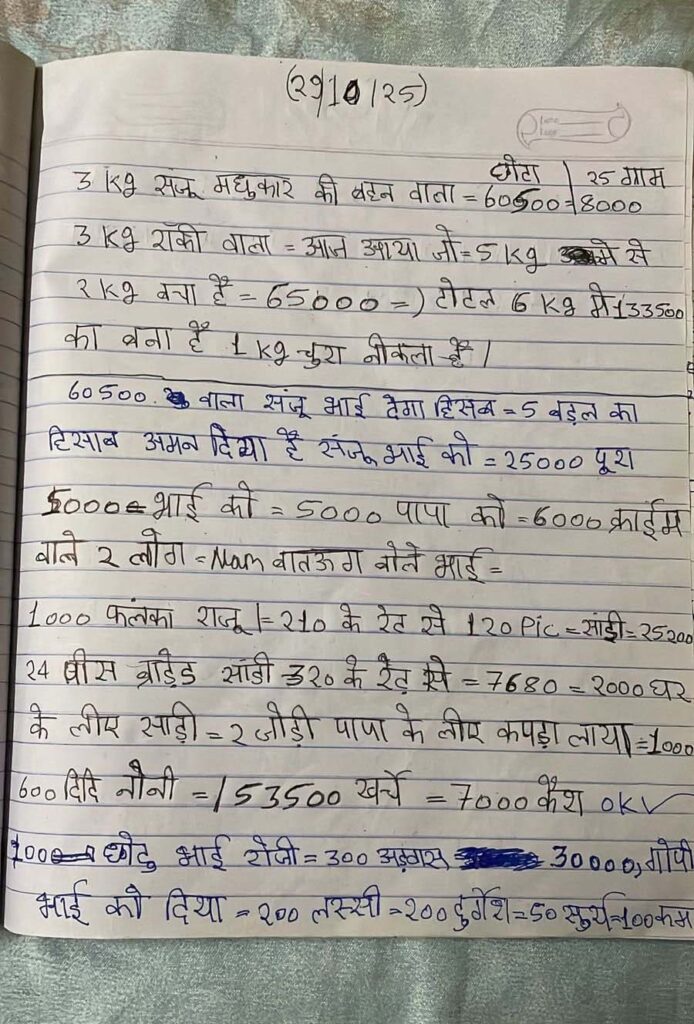 (29/10/25)
छोटा | 25 ग्राम
3 kg संजू मधुकार की बहन वाला = 60500 = 8000
3 kg रॉकी वाला = आज आया जो = 5 kg मे से
2 kg बचा है = 65000 =) टोटल 6 kg मे 133500
का बना है 1 kg चुरा नीकला है |
60500. वाला संजू भाई देगा हिसब = 5 बड़ल का
हिसाब अमन दिया है संजू भाई को = 25000 पूरा
5000 = भाई को = 5000 पापा को = 6000 क्राईम
वाले 2 लोग = Nam बातऊग बोले भाई =
1000 फलका राजू |= 210 के रेट से 120 Pic = साड़ी = 25200
24 पीस ब्राडेड साडी 320 के रेट से = 7680 = 2000 घर
के लीए साड़ी = 2 जोड़ी पापा के लीए कपड़ा लाया |= 1000
600 दिदि नौनी = / 53500 खर्चे = 7000 कैश OK ✓
1000 छोटु भाई रोजी = 300 अड़गस 30000, गोपी
भाई को दिया = 200 लस्सी = 200 दुर्गेश = 50 सुर्य = 100 कम